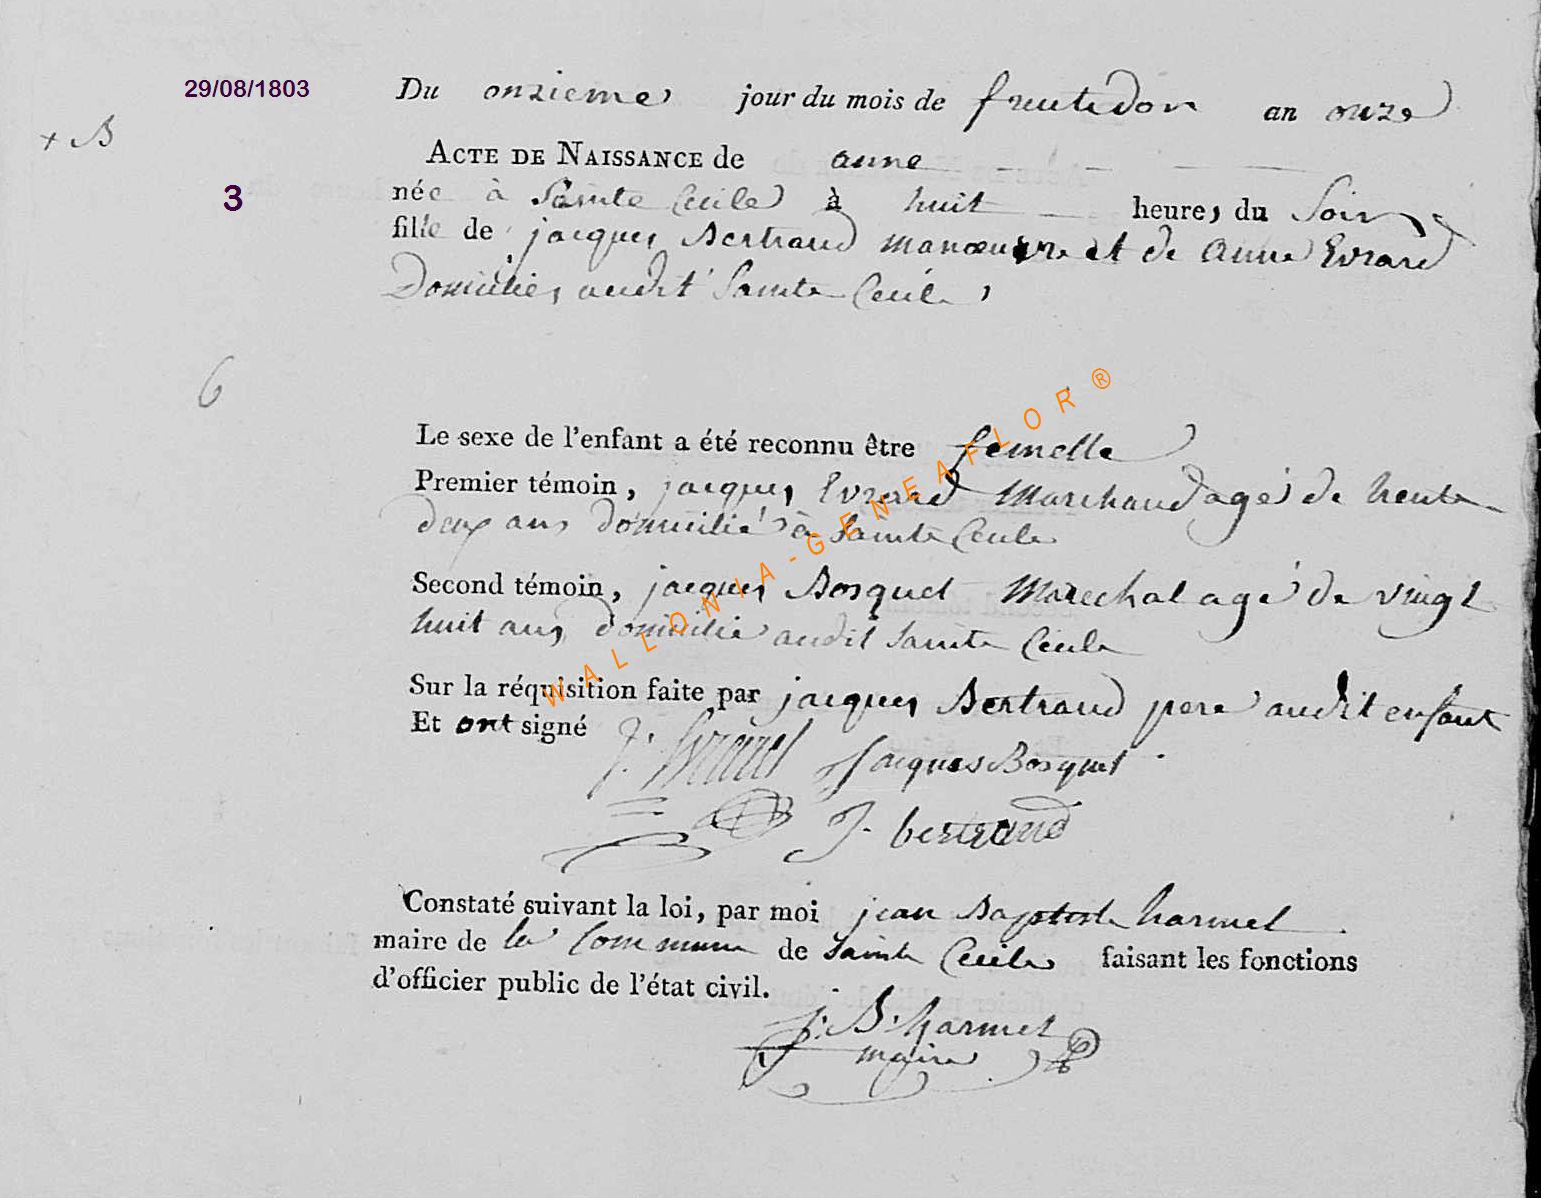 29/08/1803
Du onzieme jour du mois de fructidor an onze
+ B
ACTE DE NAISSANCE de anne
3
née à Sainte Cecile à huit heures du Soir
fille de jacques Bertrand manœuvre et de anne Evrard
Domiciliés audit Sainte Cecile,
6
Le sexe de l'enfant a été reconnu être femelle
Premier témoin, jacques Evrard Marchand agé de trente
deux ans domicilié à Sainte Cecile
Second témoin, jacques Bosquet Marechal agé de vingt
huit ans domicilié audit Sainte Cecile
Sur la réquisition faite par jacques Bertrand pere audit enfant
Et ont signé J. Evrard Jacques Bosquet
J. bertrand
WALLONIA-GENEAFLOR®
Constaté suivant la loi, par moi jean Baptiste harmel
maire de la Commune de Sainte Cecile faisant les fonctions
d'officier public de l'état civil.
j. B. harmel
maire